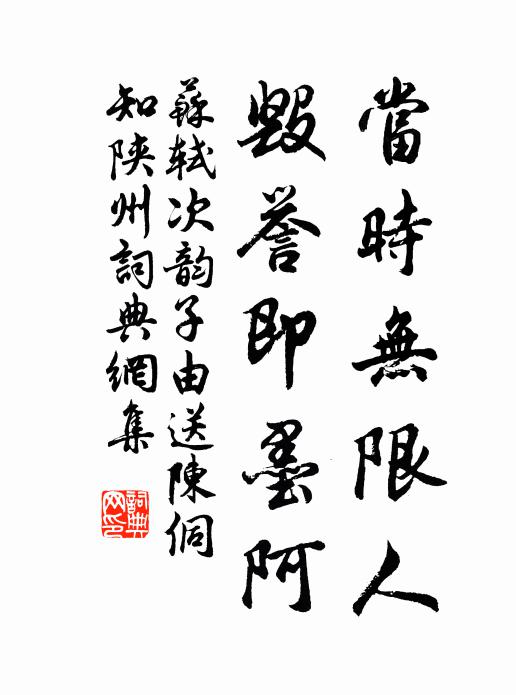 當時無限人
毀譽即墨阿
蘇軾次韵子由送陳侗
知陝州詞典網集
詞典网印